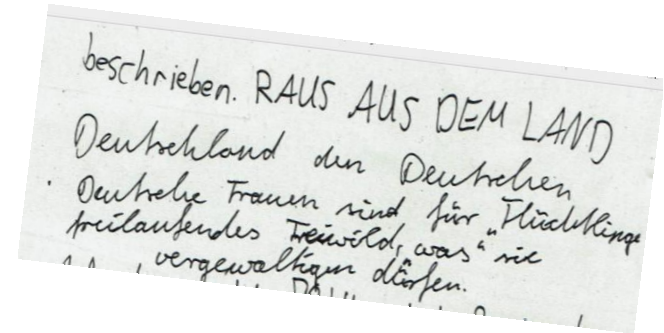 beschrieben. RAUS AUS DEM LAND
Deutschland den Deutschen
Deutsche Frauen sind für „Flüchtlinge
freilaufendes Freiwild, was“ sie
vergewaltigen dürfen.